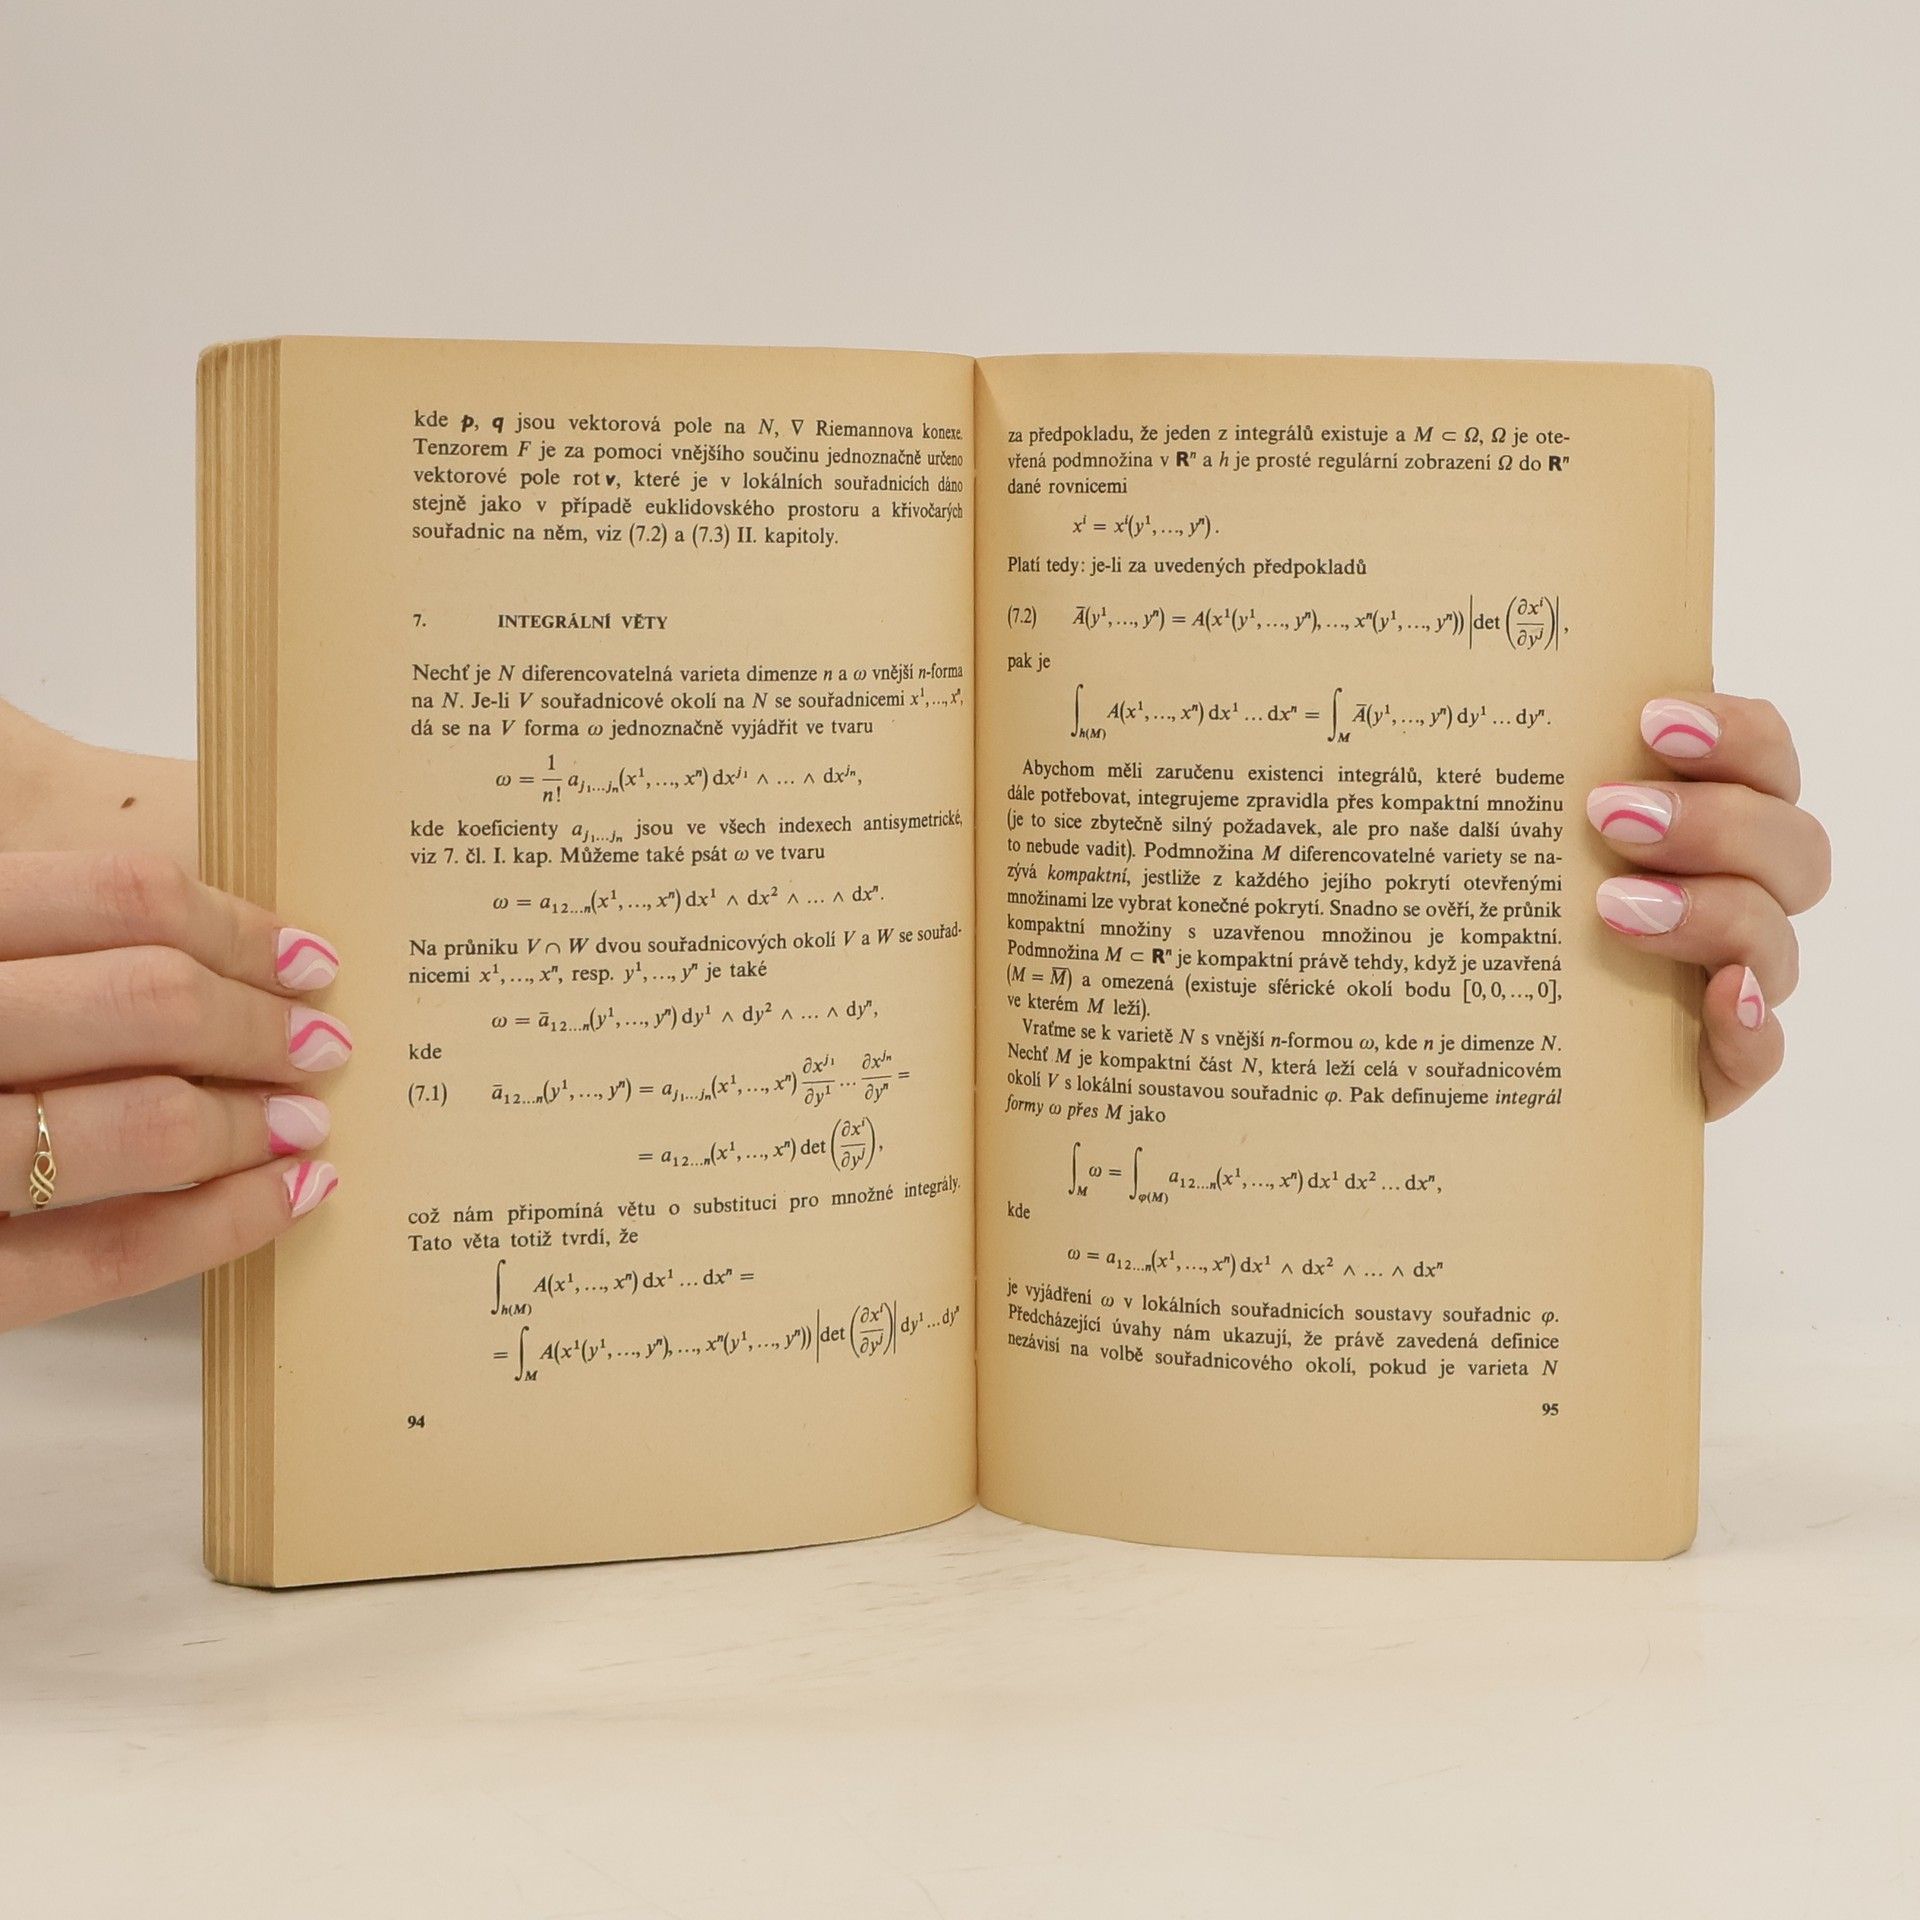 kde p, q jsou vektorová pole na N, ∇ Riemannova konexe.
Tenzorem F je za pomoci vnějšího součinu jednoznačně určeno
vektorové pole rot v, které je v lokálních souřadnicích dáno
stejně jako v případě euklidovského prostoru a křivočarých
souřadnic na něm, viz (7.2) a (7.3) II. kapitoly.
7. INTEGRÁLNÍ VĚTY
Nechť je N diferencovatelná varieta dimenze n a ω vnější n-forma
na N. Je-li V souřadnicové okolí na N se souřadnicemi x¹, ..., xⁿ,
dá se na V forma ω jednoznačně vyjádřit ve tvaru
ω = 1/n! a_{j₁...jₙ}(x¹, ..., xⁿ) dx^{j₁} ∧ ... ∧ dx^{jₙ},
kde koeficienty a_{j₁...jₙ} jsou ve všech indexech antisymetrické,
viz 7. čl. I. kap. Můžeme také psát ω ve tvaru
ω = a_{12...n}(x¹, ..., xⁿ) dx¹ ∧ dx² ∧ ... ∧ dxⁿ.
Na průniku V ∩ W dvou souřadnicových okolí V a W se souřad-
nicemi x¹, ..., xⁿ, resp. y¹, ..., yⁿ je také
ω = ā_{12...n}(y¹, ..., yⁿ) dy¹ ∧ dy² ∧ ... ∧ dyⁿ,
kde
(7.1) ā_{12...n}(y¹, ..., yⁿ) = a_{j₁...jₙ}(x¹, ..., xⁿ) ∂x^{j₁}/∂y¹ ... ∂x^{jₙ}/∂yⁿ =
= a_{12...n}(x¹, ..., xⁿ) det (∂xⁱ/∂yʲ),
což nám připomíná větu o substituci pro množné integrály.
Tato věta totiž tvrdí, že
∫_{h(M)} A(x¹, ..., xⁿ) dx¹ ... dxⁿ =
= ∫_M A(x¹(y¹, ..., yⁿ), ..., xⁿ(y¹, ..., yⁿ)) |det (∂xⁱ/∂yʲ)| dy¹ ... dyⁿ
94
za předpokladu, že jeden z integrálů existuje a M ⊂ Ω, Ω je ote-
vřená podmnožina v Rⁿ a h je prosté regulární zobrazení Ω do Rⁿ
dané rovnicemi
xⁱ = xⁱ(y¹, ..., yⁿ).
Platí tedy: je-li za uvedených předpokladů
(7.2) Ā(y¹, ..., yⁿ) = A(x¹(y¹, ..., yⁿ), ..., xⁿ(y¹, ..., yⁿ)) |det (∂xⁱ/∂yʲ)|,
pak je
∫_{h(M)} A(x¹, ..., xⁿ) dx¹ ... dxⁿ = ∫_M Ā(y¹, ..., yⁿ) dy¹ ... dyⁿ.
Abychom měli zaručenu existenci integrálů, které budeme
dále potřebovat, integrujeme zpravidla přes kompaktní množinu
(je to sice zbytečně silný požadavek, ale pro naše další úvahy
to nebude vadit). Podmnožina M diferencovatelné variety se na-
zývá kompaktní, jestliže z každého jejího pokrytí otevřenými
množinami lze vybrat konečné pokrytí. Snadno se ověří, že průnik
kompaktní množiny s uzavřenou množinou je kompaktní.
Podmnožina M ⊂ Rⁿ je kompaktní právě tehdy, když je uzavřená
(M = M̄) a omezená (existuje sférické okolí bodu [0, 0, ..., 0],
ve kterém M leží).
Vraťme se k varietě N s vnější n-formou ω, kde n je dimenze N.
Nechť M je kompaktní část N, která leží celá v souřadnicovém
okolí V s lokální soustavou souřadnic φ. Pak definujeme integrál
formy ω přes M jako
∫_M ω = ∫_{φ(M)} a_{12...n}(x¹, ..., xⁿ) dx¹ dx² ... dxⁿ,
kde
ω = a_{12...n}(x¹, ..., xⁿ) dx¹ ∧ dx² ∧ ... ∧ dxⁿ
je vyjádření ω v lokálních souřadnicích soustavy souřadnic φ.
Předcházející úvahy nám ukazují, že právě zavedená definice
nezávisí na volbě souřadnicového okolí, pokud je varieta N
95